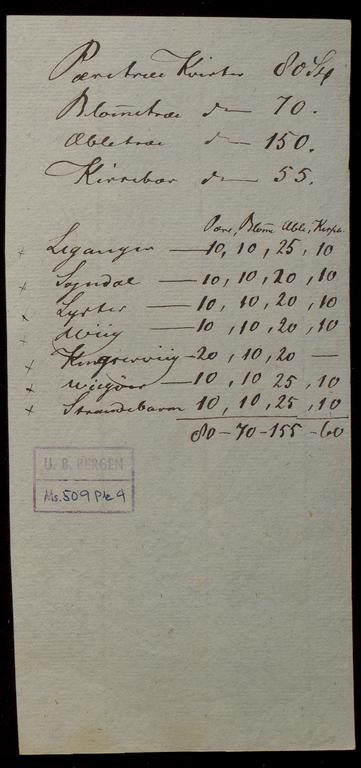 Pæretræe Kvister 80 Stk
Blometræ do 70.
Æbletræe do 150.
Kirsebær do 55.
Pære, Blome Æble, Kirseb.
x Leganger — 10, 10, 25, 10
x Sogndal — 10, 10, 20, 10
x Lyster — 10, 10, 20, 10
x Wiig — 10, 10, 20, 10
x Kingserviig - 20, 10, 20 —
x Wiigøer — 10, 10 25, 10
x Strandebarm 10, 10, 25, 10
80 - 70 - 155 - 60
U. B. BERGEN
Ms. 509 Pk 9